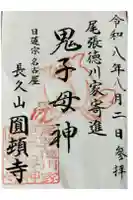 令和八年八月二日参拝
尾張徳川家寄進
鬼子母神
日蓮宗名古屋
長久山圓頓寺